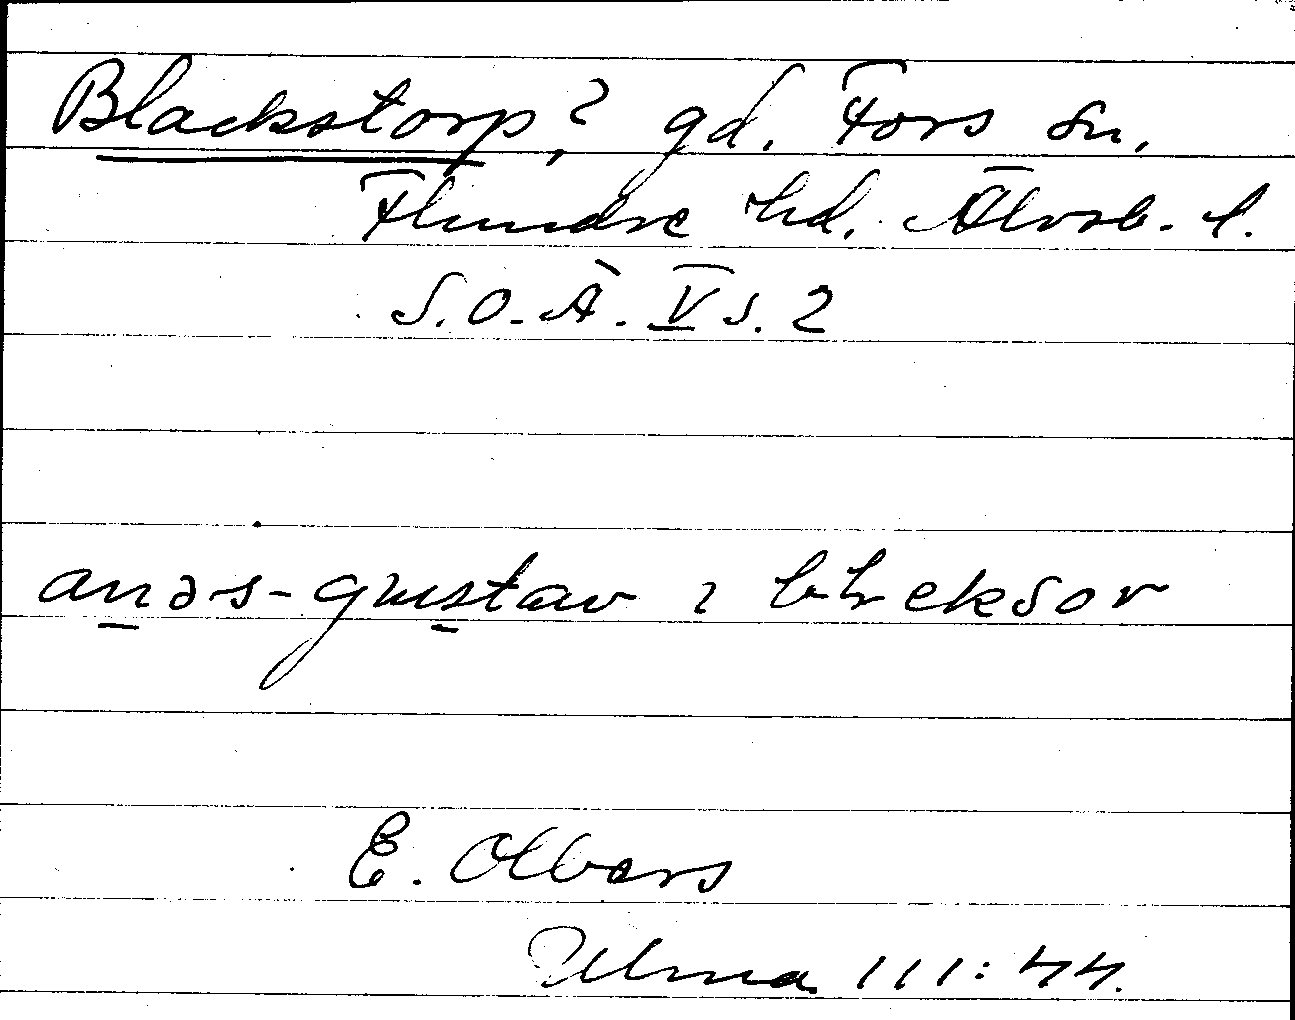 Blackstorp,? gd. Fors sn.
Flundre hd. Älvsb. l.
S.O.Ä. V s. 2
anəs-gustav ı
E. Olbers
Ulma 111:44.